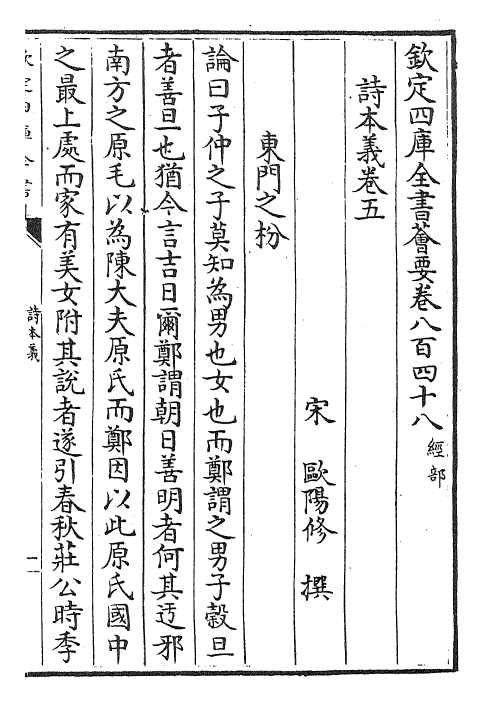 欽定四庫全書薈要卷八百四十八 經部
詩本義卷五
宋 歐陽修 撰
東門之枌
論曰子仲之子莫知為男也女也而鄭謂之男子穀旦
者善旦也猶今言吉日爾鄭謂朝日善明者何其迃邪
南方之原毛以為陳大夫原氏而鄭因以此原氏國中
之最上處而家有美女附其說者遂引春秋莊公時季
詩本義
一